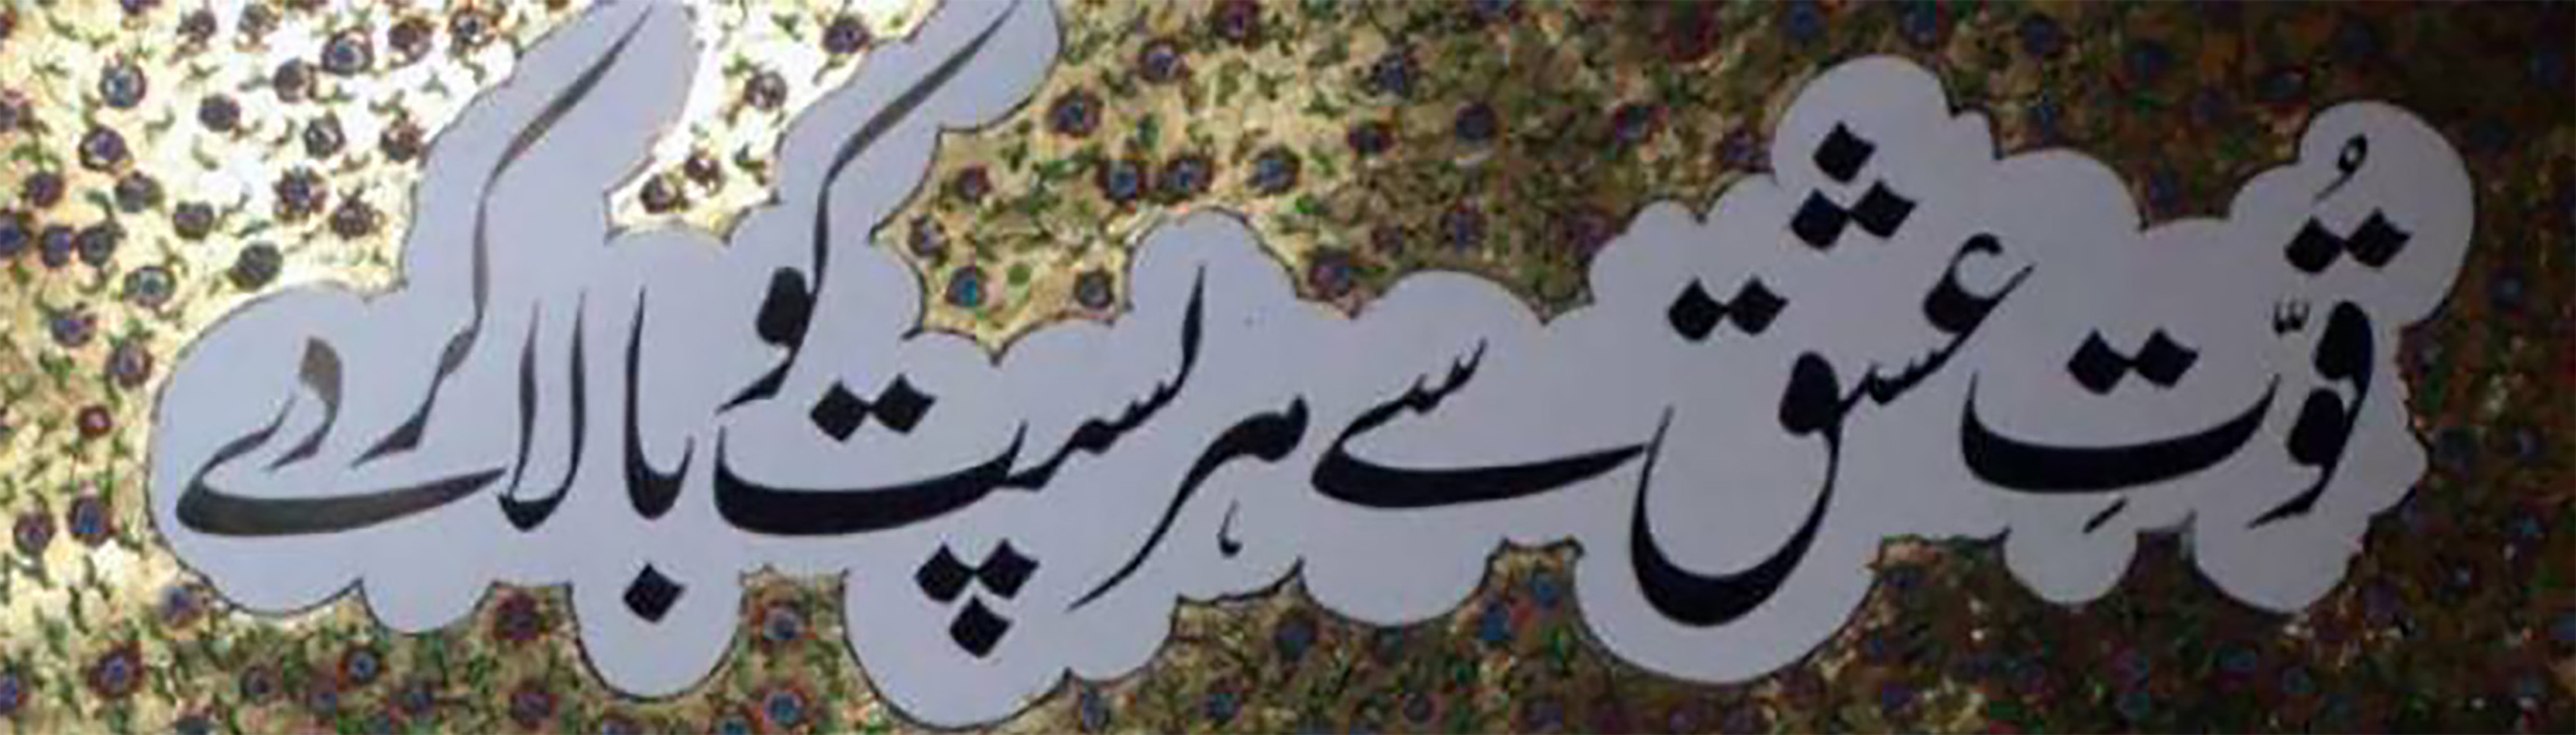 قُوّتِ عشق سے ہر پست کو بالا کر دے